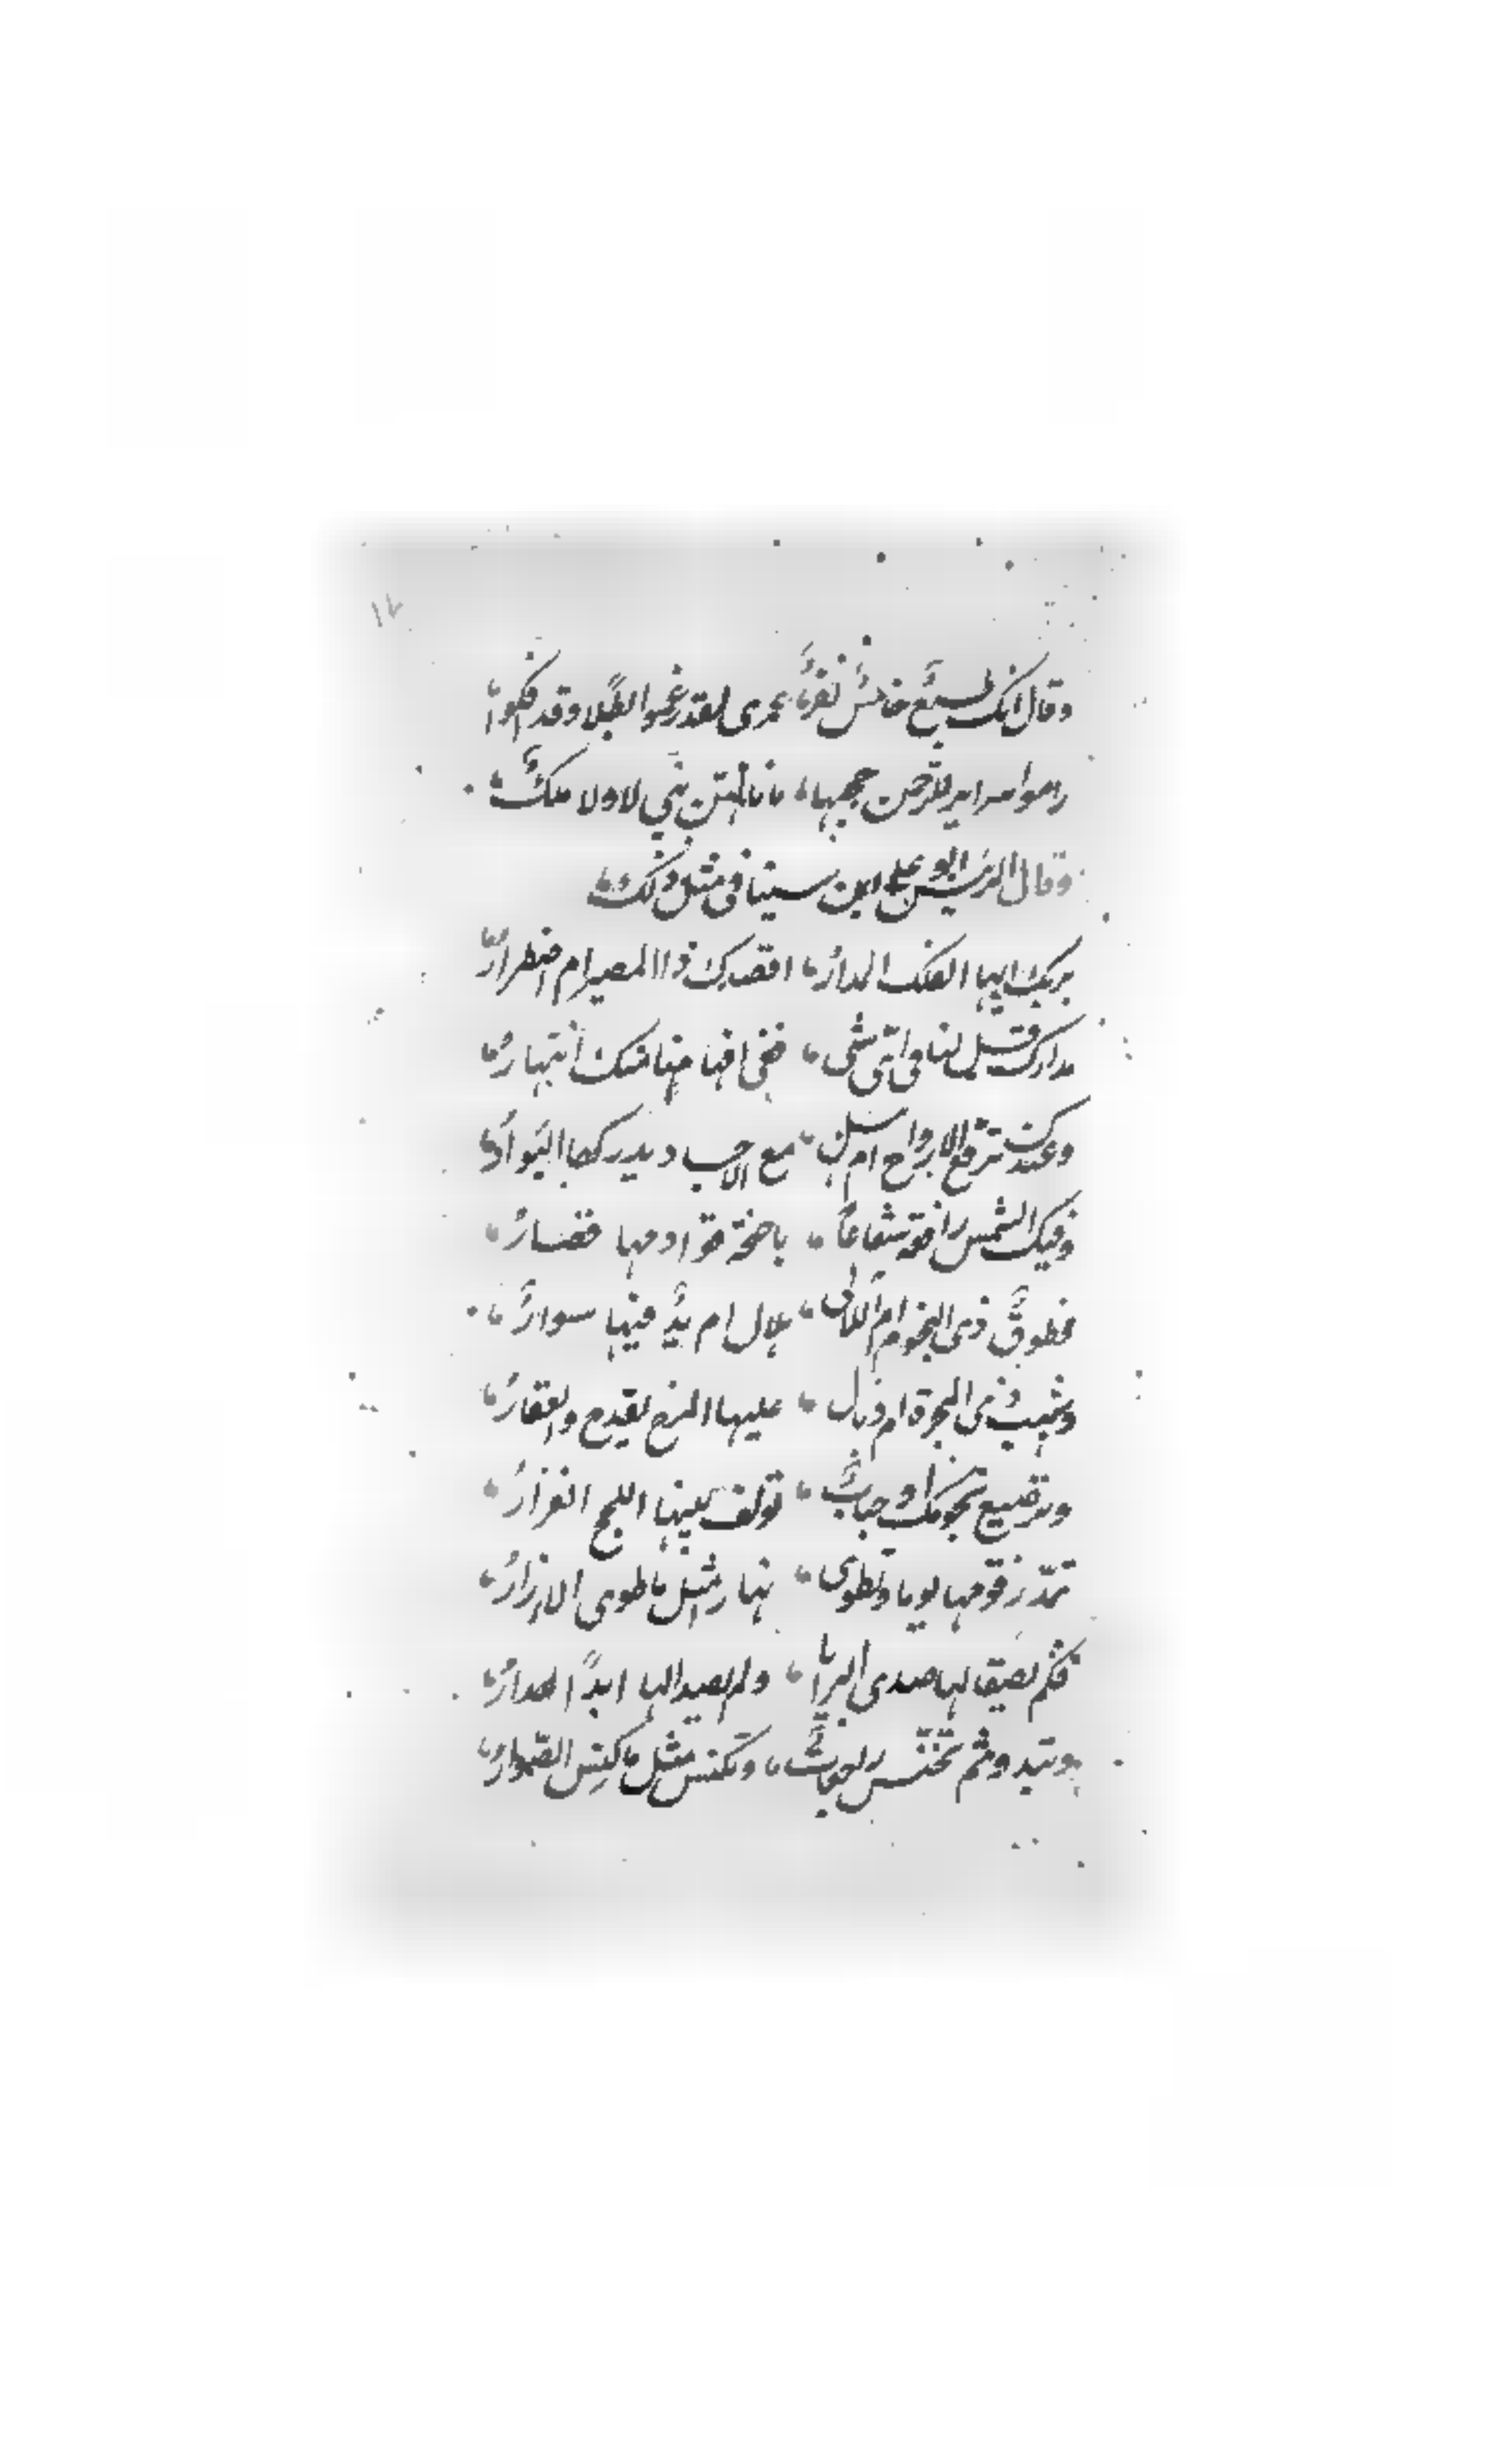 ١٧
وقال انك طبع خامس نفر عمرى لقد زعموا بطلا وقد افكوا
راموا سرائر للرحمن حجبها ما نالهن نبى لا ولا ملك
وقال الرئيس ابو على ابن سينا فى مثل ذلك
بربك ايها الفلك المدار اقصدك ذا المسير ام اضطرار
مدارك قل لنا فى اى شى ففى افهامنا منك انبهار
وعندك ترفع الارواح ام هل مع الاجساد يدركها البوار
وفيك الشمس رافعة شعاعا باجنحة قوادمها قصار
فطوق ذى النجوم ام لآلى هلال ام يد فيها سوار
وشهب ذى المجرة ام ذبال عليها المرخ يقدح والعفار
وترصيع نجومك او حباب تولف بينها اللجج الغزار
تمد رقومها يوما وتطوى نهار مثل ما طوى الازار
فكم بصقالها صدى البرايا ولم يصدا لها ابدا
وتبدو ثم تخنس راجعات وتكنس مثل ما كنس الصوار